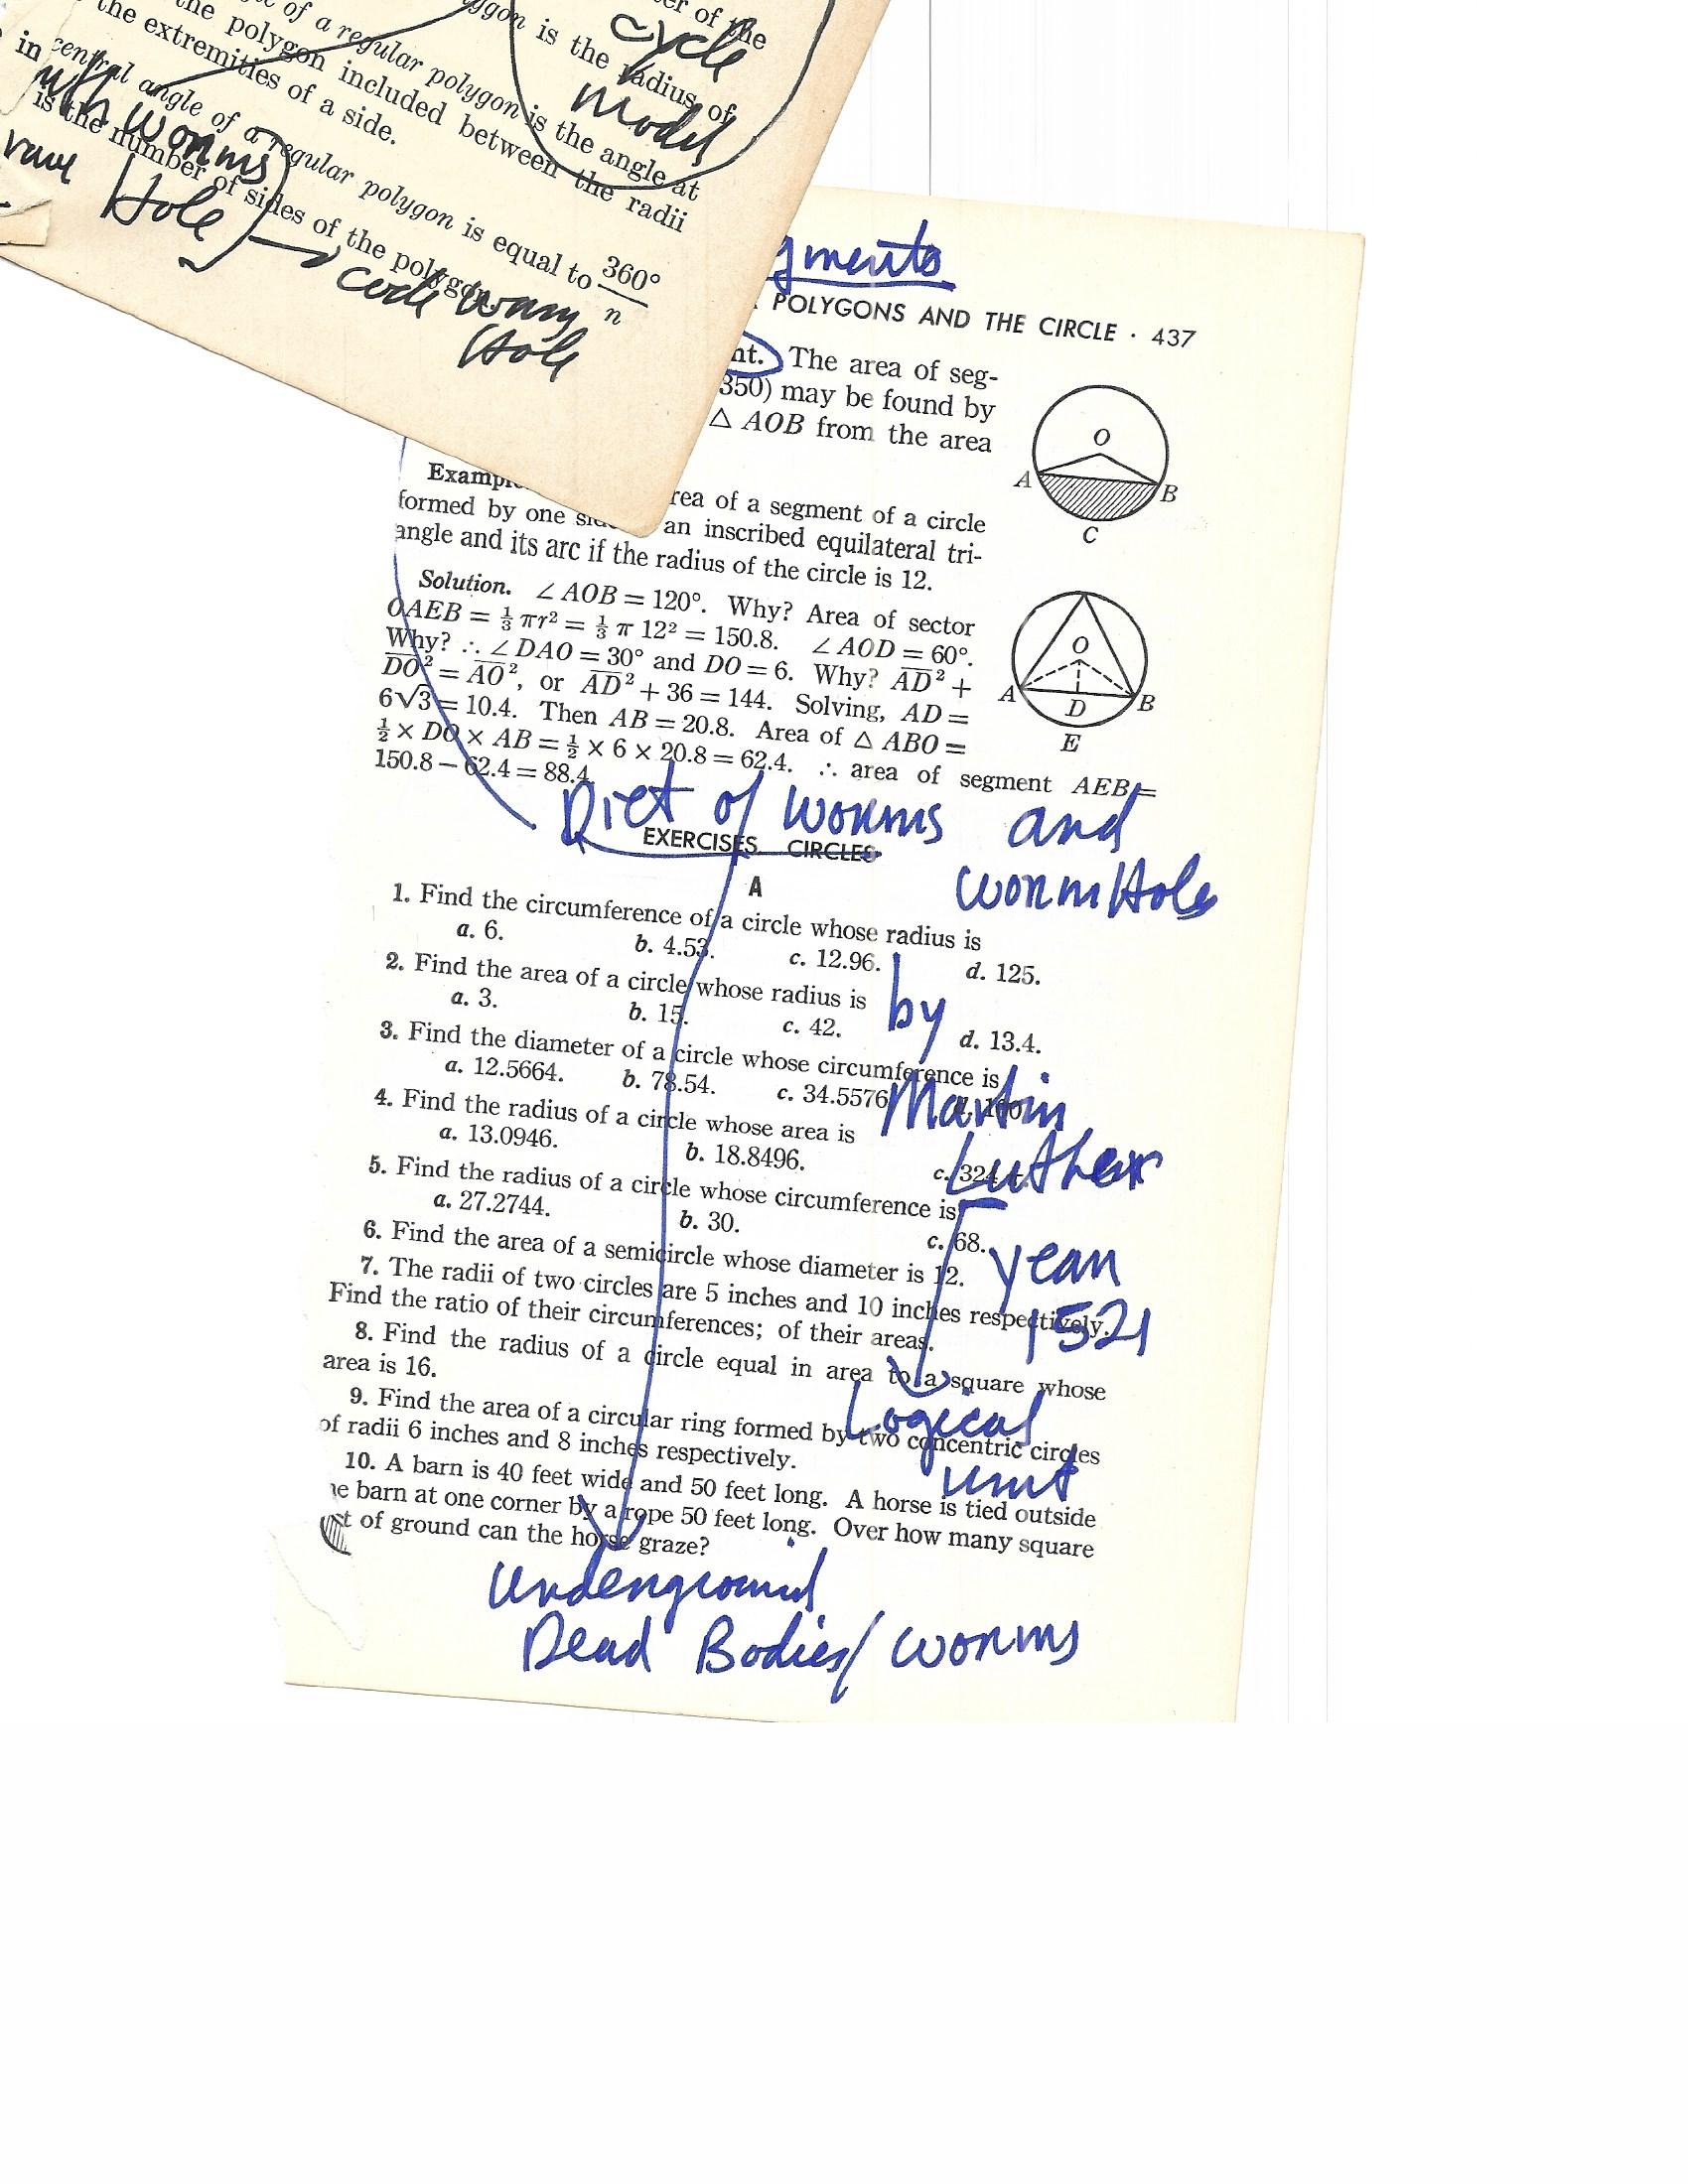 er of the
cycle
gon is the radius of
model
of a regular polygon is the angle at
the polygon included between the radii
the extremities of a side.
in central angle of a regular polygon is equal to 360°
n
with worms
is the number of sides of the polygon.
Hole
code
Hole
gments
POLYGONS AND THE CIRCLE · 437
nt. The area of seg-
350) may be found by
△ AOB from the area
O
A
B
C
Exampl
rea of a segment of a circle
formed by one sid an inscribed equilateral tri-
angle and its arc if the radius of the circle is 12.
Solution. ∠ AOB = 120°. Why? Area of sector
OAEB = ⅓ πr² = ⅓ π 12² = 150.8. ∠ AOD = 60°.
Why? ∴ ∠ DAO = 30° and DO = 6. Why? AD² +
DO² = AO², or AD² + 36 = 144. Solving, AD =
6√3 = 10.4. Then AB = 20.8. Area of △ ABO =
½ × DO × AB = ½ × 6 × 20.8 = 62.4. ∴ area of segment AEB =
150.8 – 62.4 = 88.4.
O
A
D
B
E
Diet of worms and
wormHoles
EXERCISES. CIRCLES
A
1. Find the circumference of a circle whose radius is
a. 6. b. 4.53. c. 12.96. d. 125.
2. Find the area of a circle whose radius is
a. 3. b. 15. c. 42. d. 13.4.
by
3. Find the diameter of a circle whose circumference is
a. 12.5664. b. 78.54. c. 34.5576 d. 100
Martin
4. Find the radius of a circle whose area is
a. 13.0946. b. 18.8496. c. 324
Luther
5. Find the radius of a circle whose circumference is
a. 27.2744. b. 30. c. 68.
6. Find the area of a semicircle whose diameter is 12.
year
1521
7. The radii of two circles are 5 inches and 10 inches respectively.
Find the ratio of their circumferences; of their areas.
8. Find the radius of a circle equal in area to a square whose
area is 16.
Logical
unit
9. Find the area of a circular ring formed by two concentric circles
of radii 6 inches and 8 inches respectively.
10. A barn is 40 feet wide and 50 feet long. A horse is tied outside
he barn at one corner by a rope 50 feet long. Over how many square
et of ground can the horse graze?
underground
Dead Bodies/ worms